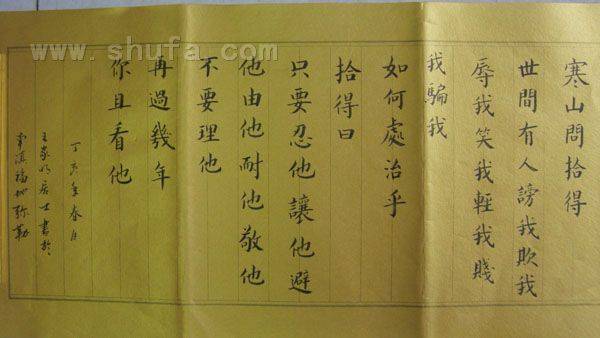 寒山問拾得
世間有人謗我欺我
辱我笑我輕我賤
我騙我
如何處治乎
拾得曰
只要忍他讓他避
他由他耐他敬他
不要理他
再過幾年
你且看他
丁亥年春月
王家明居士書於
東滇福地弥勒
www.shufa.com